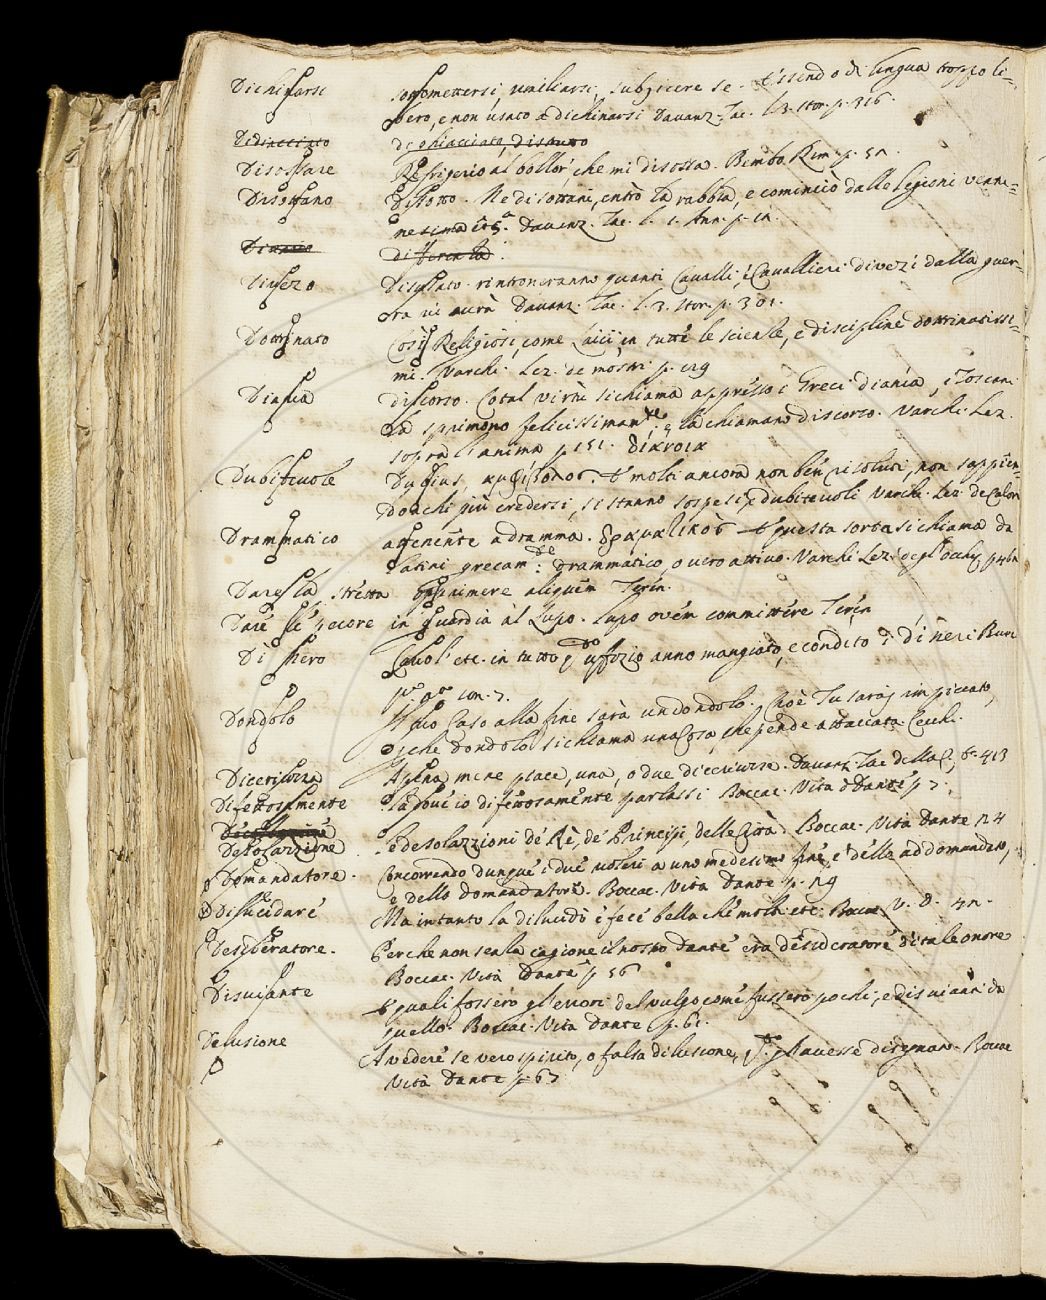 Dichinarsi sottomettersi, umiliarsi, subjicere se. essendo di lingua troppo li=
bero, e non usato a dichinarsi Davanz. Tac. l. 3. stor. p. 316.
Didiacciato dighiacciato, disfatto
Disossare Refrigerio al bollor, che mi disossa. Bembo Rim. p.
Disottano Disotto. Ne disottani, entrò la rabbia, e cominciò dalle legioni vente=
nesima e 5.ª Davanz. Tac. l. 1. Ann. p.
Divario differenza.
Divezo Disusato. rintroneranno quanti Cavalli, e Cavallieri divezi dalla guer=
ra ui aurà Davanz. Tac. l. 3. stor. p. 301.
Dottrinato Così Religiosi, come Laici, in tutte le scienze, e discipline dottrinatissi=
mi. Varchi. Lez. de mostri p. 129
Diania discorso. Cotal virtù si chiama appresso i Greci dianía, i Toscani
la sprimono felicissimam.te, e la chiamano discorso. Varchi. Lez.
sopra l'anima p. 151. διανοια
Dubitevole Dubius, molti ancora non ben risoluti, non sappien=
do a chi più credersi, si stanno sospesi, e dubitevoli Varchi. Lez. de Calori
Drammatico attenente a dramma. δραματικὸς questa sorta si chiama da
latini grecam.te drammatico, o vero attivo. Varchi Lez. degl'occhi p.
Dare la stretta opprimere aliquem Terin.
Dare le pecore in guardia al Lupo. Lupo ovem committere Teren
Di nero Cavol' etc. in tutto uffizio anno mangiato, e condito di neri Bur
p.e q.to son. 7.
Dondolo Il tuo Caso alla fine sarà un dondolo. Cioè Tu sarai impiccato,
che dondolo si chiama una cosa, che pende attaccata. Cecchi.
Diceriuzza Appena me ne piace, una, o due diceriuzze. Davanz. Tac. della 413
Difettosamente Là dove io difettosamente parlassi Boccac. Vita di Dante p. 7.
Desolazzione le desolazzioni de' Rè, de' Principi, delle Città. Boccac. Vita Dante 24
Domandatore. Concorrendo dunque i due uoleri a uno medesimo fine, e delle addomandato,
e dello domandatore. Boccac. Vita Dante p. 29
Dilucidare Ma in tanto la dilucidò e fece bella che molti etc. Boccac. V. D.
Desideratore. Perche non senza cagione il nostro Dante era desideratore di tale onore
Boccac. Vita Dante p. 56
Disviante quali fossero gl'errori del vulgo come fussero pochi, e disuianti da
quello. Boccac. Vita Dante p. 61.
Delusione A vedere se vero spirito, o falsa dilusione, q.to gl'avesse disegnato. Boccac
Vita Dante p. 67